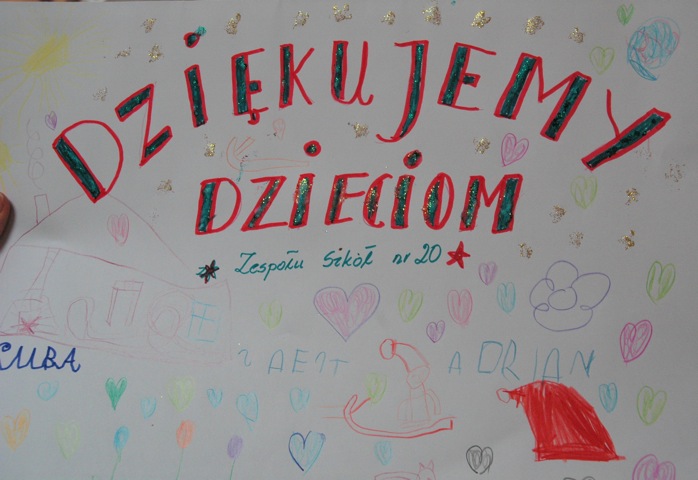 DZIĘKUJEMY
DZIECIOM
z Zespołu Szkół nr 20
CUBA
ADRIAN